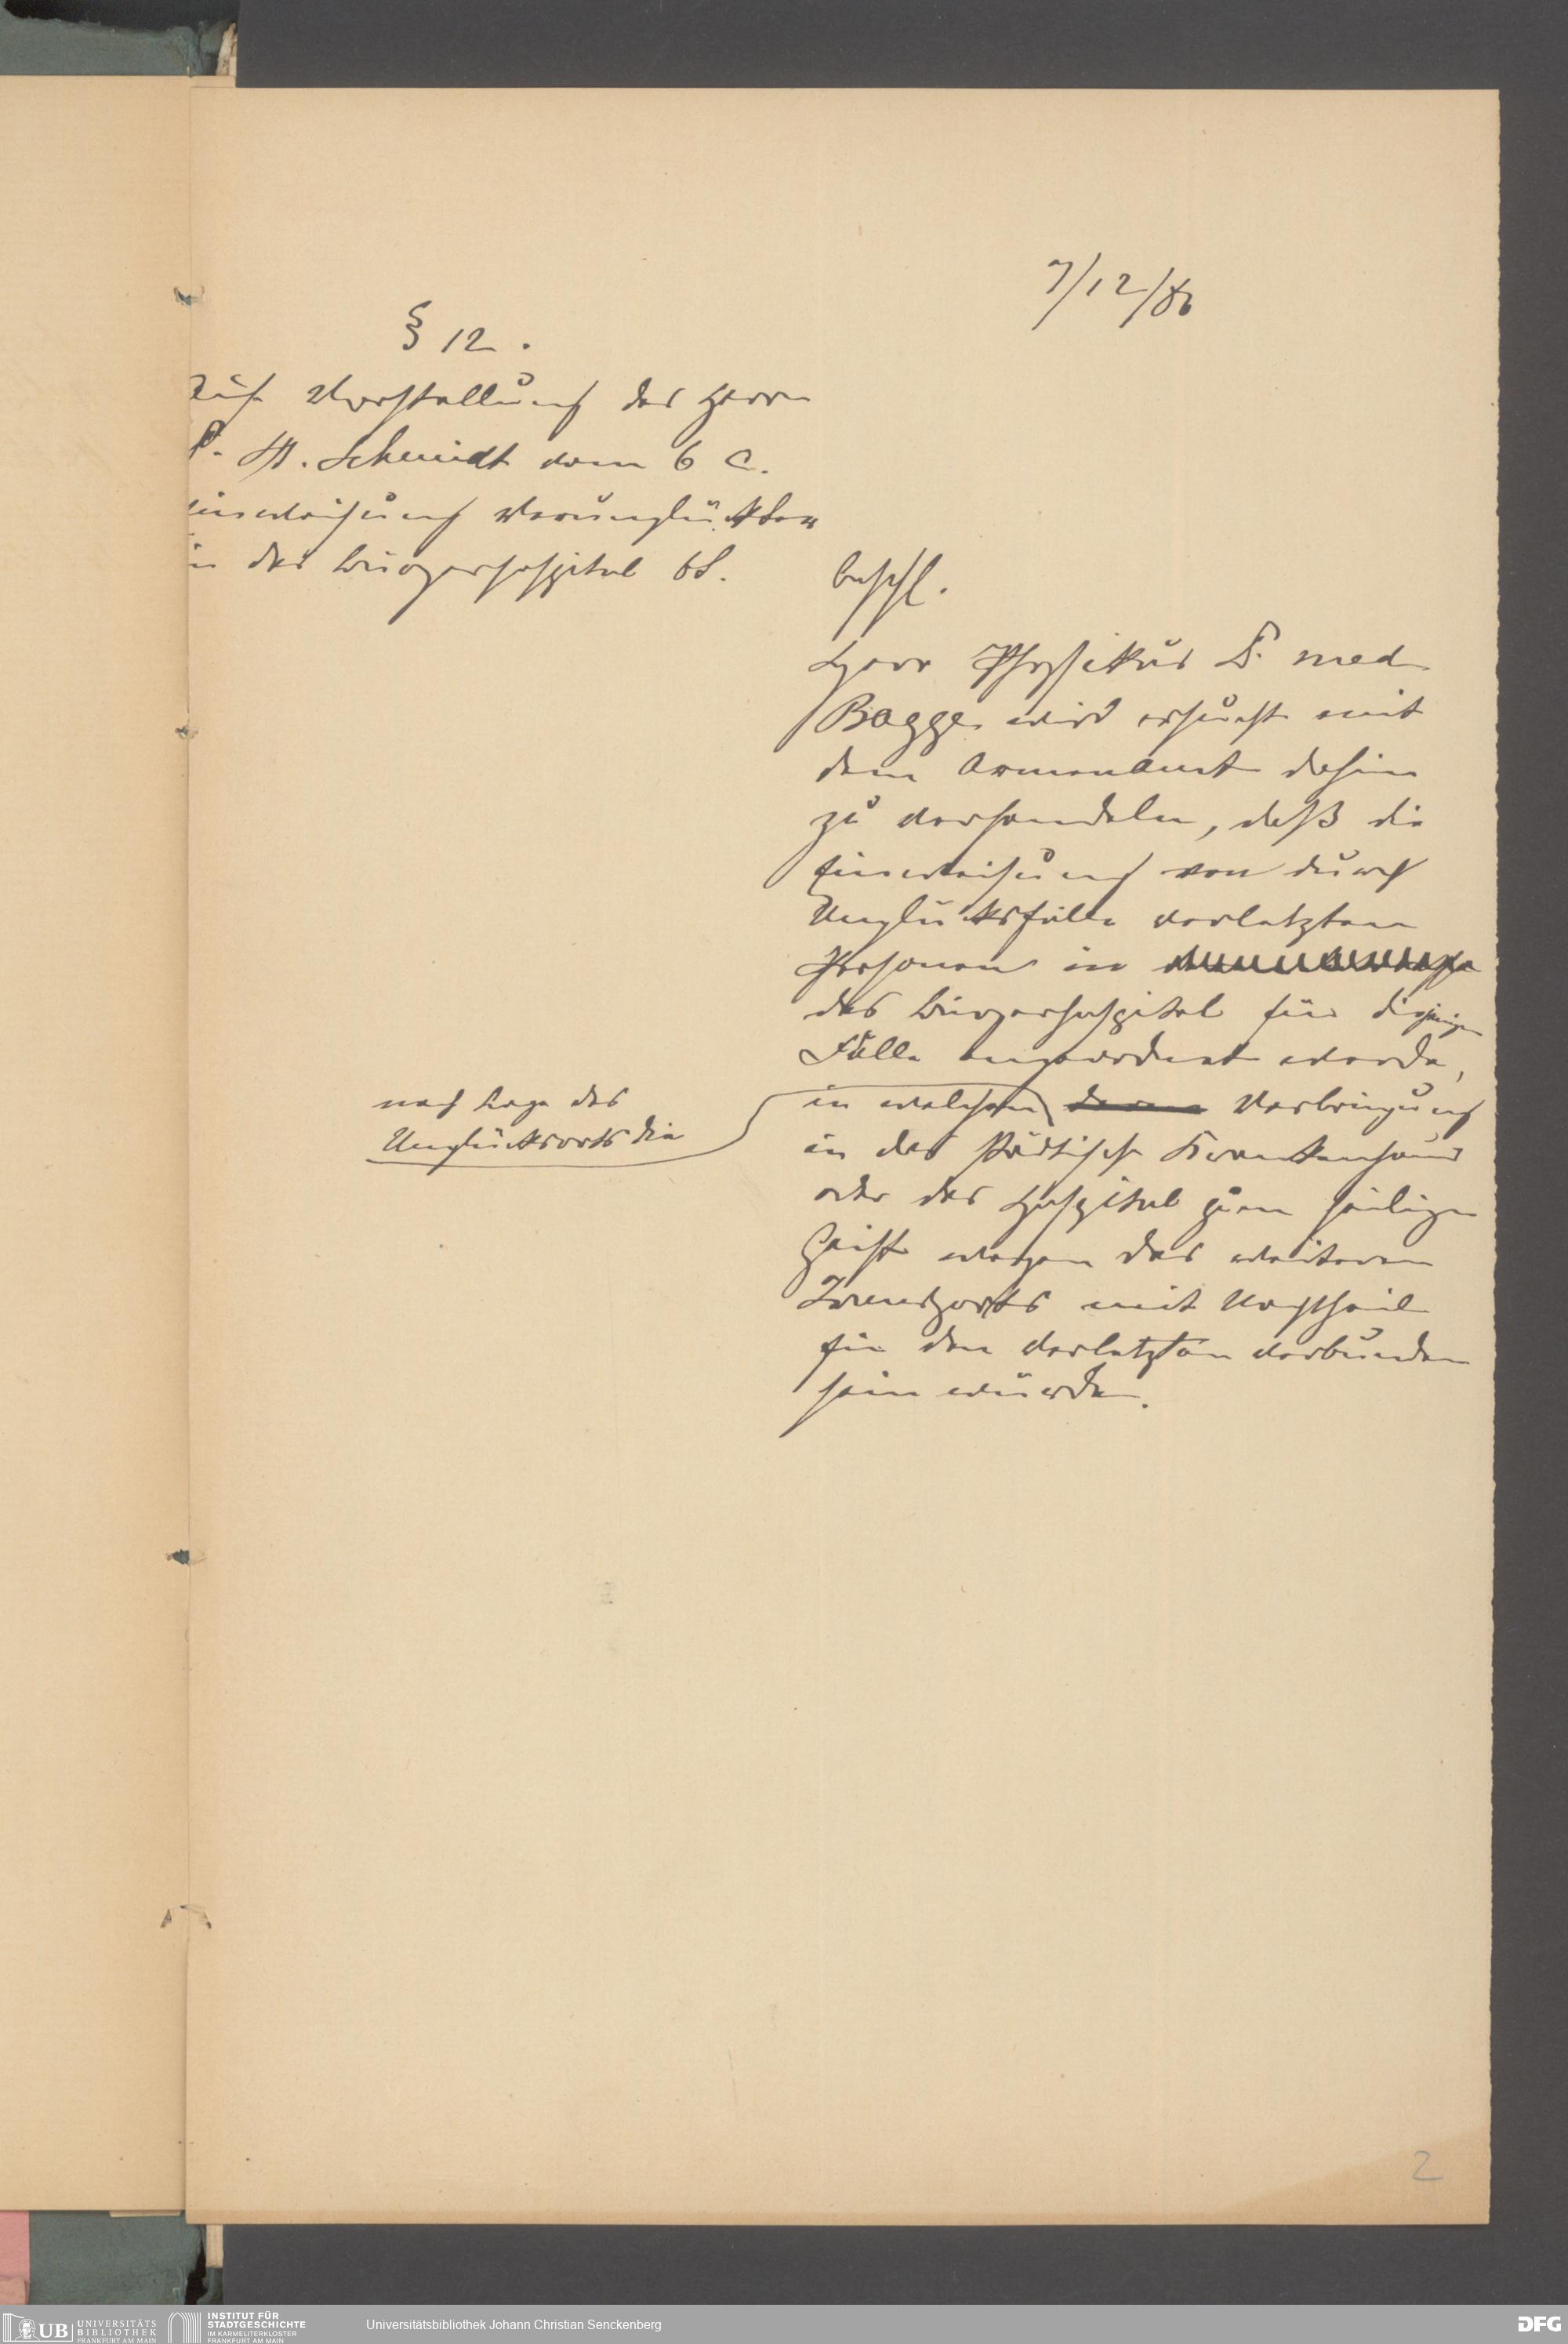 7/12/86
§ 12.
Auf Vorstellung des Herrn
P. H. Schmidt vom 6 c.
Einweisung Verunglückter
in das Bürgerhospital btf.
beschl.
Herr Physikus Dr. med
Bagge wird ersucht mit
dem Armenamt dahin
zu verhandeln, daß die
Einweisung von durch
Unglücksfälle verletzten
Personen in
das Bürgerhospital für diejenigen
Fälle angeordnet werde,
in welchen Verbringung
nach Lage des
Unglücksorts die
in das städtische Krankenhaus
oder das Hospital zum heiligen
Geist wegen des weiteren
Transports mit Nachtheil
für den Verletzten verbunden
sein würde.
2
UB UNIVERSITÄTS
BIBLIOTHEK
FRANKFURT AM MAIN
INSTITUT FÜR
STADTGESCHICHTE
IM KARMELITERKLOSTER
FRANKFURT AM MAIN
Universitätsbibliothek Johann Christian Senckenberg
DFG